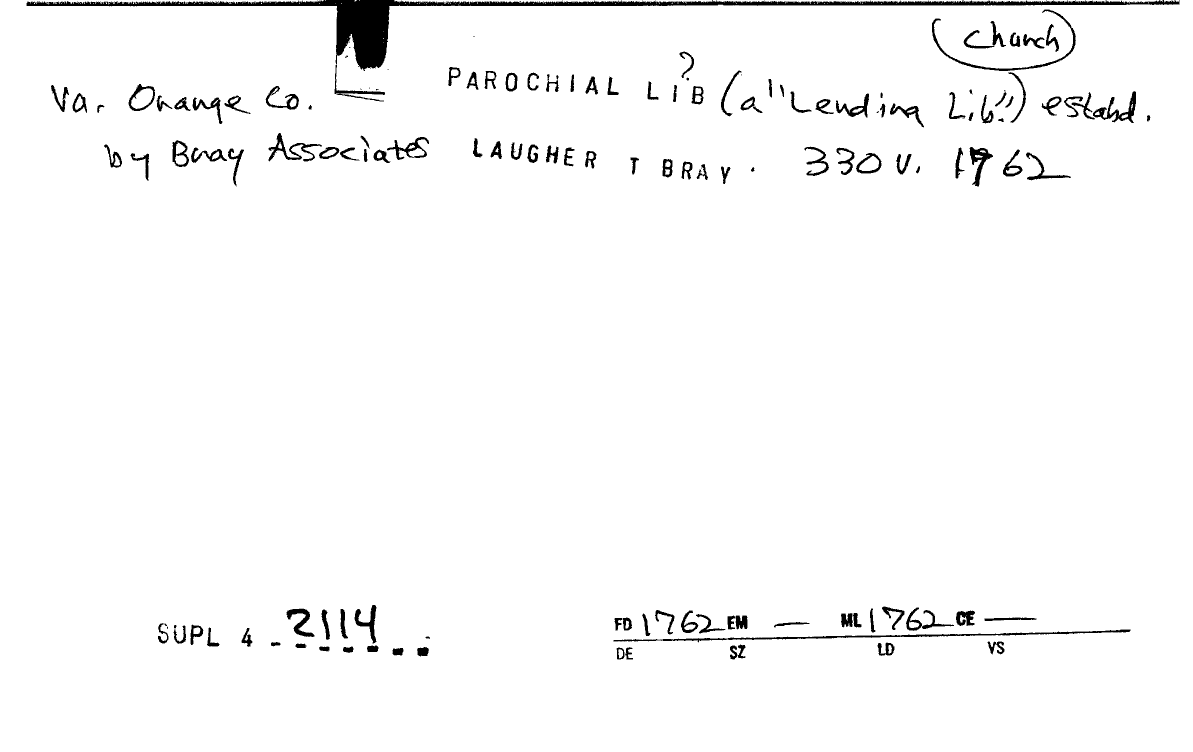 (Church)
?
Va. Orange Co. PAROCHIAL LIB (a "Lending Lib.") estabd.
by Bray Associates LAUGHER T BRAY. 330 v. 1762
SUPL 4 - 2114
FD 1762 EM — ML 1762 CE —
DE SZ LD VS